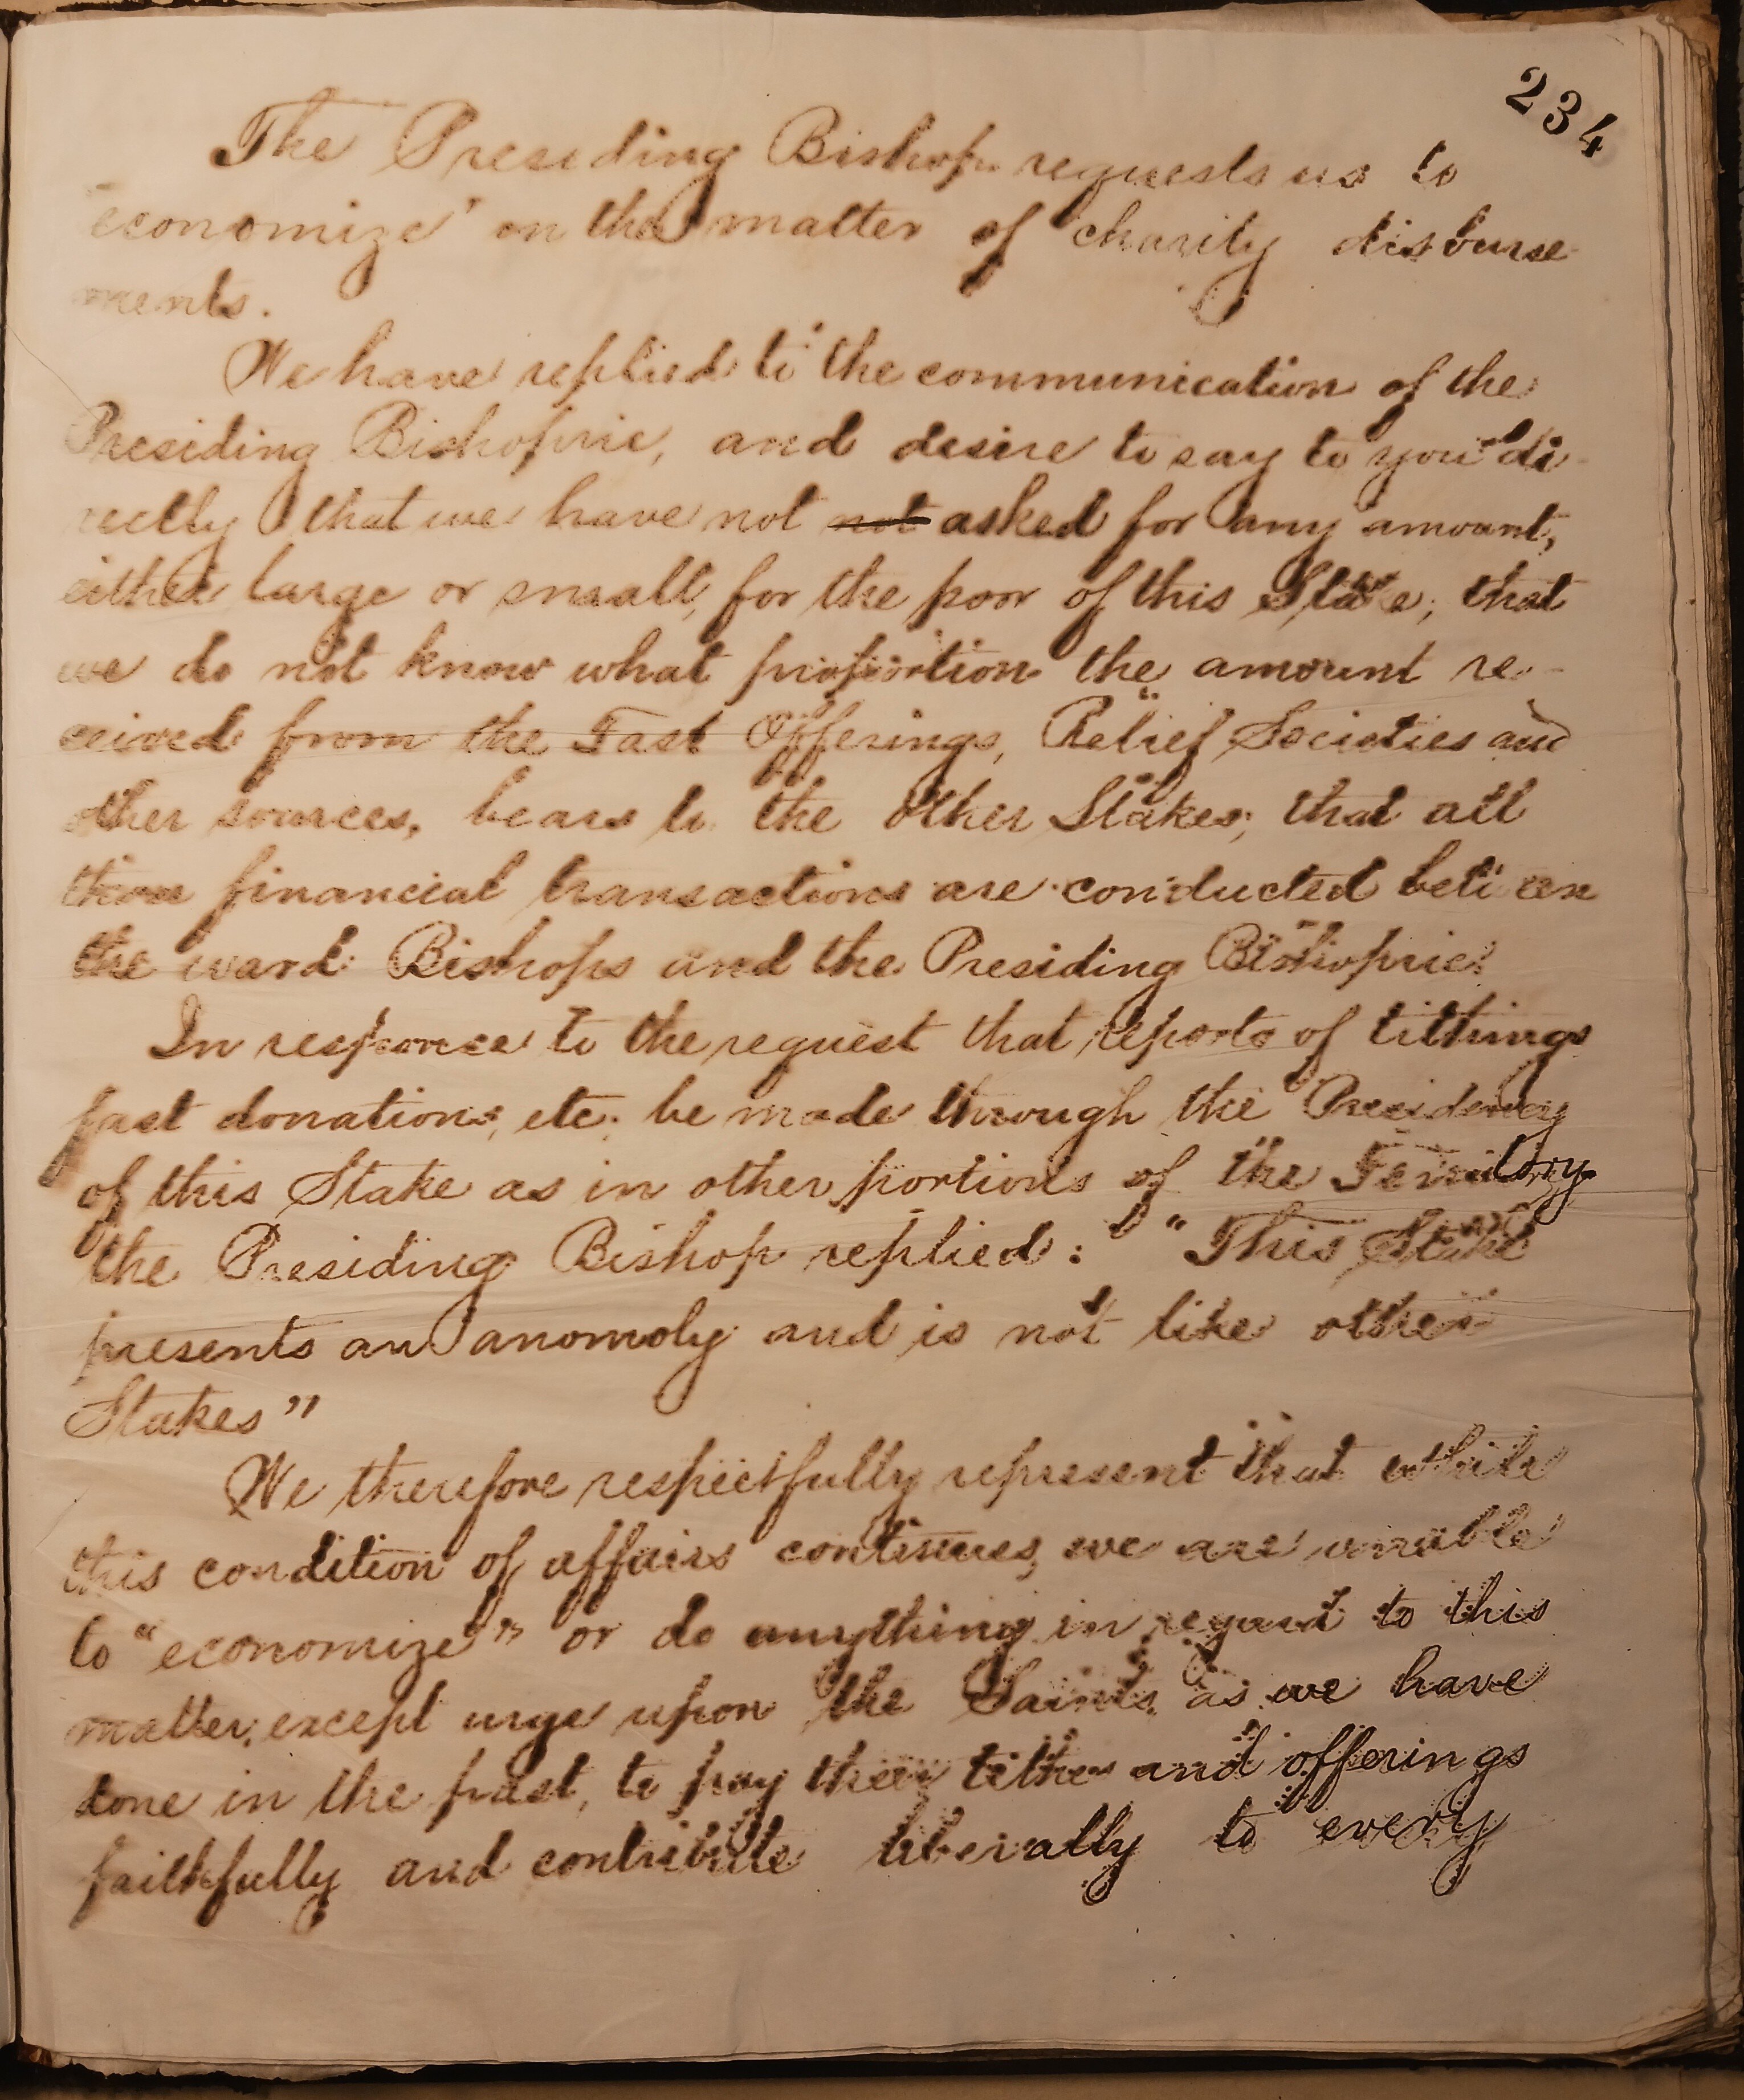 234
The Presiding Bishop requests us to
"economize" on the matter of charity disburse-
ments.
We have replied to the communication of the
Presiding Bishopric, and desire to say to you di-
rectly that we have not not asked for any amount,
either large or small, for the poor of this Stake; that
we do not know what proportion the amount re-
ceived from the Fast Offerings, Relief Societies and
other sources, bears to the other Stakes; that all
these financial transactions are conducted between
the ward Bishops and the Presiding Bishopric.
In response to the request that reports of tithings
fast donations, etc. be made through the Presidency
of this Stake as in other portions of the Territory
the Presiding Bishop replied: "This Stake
presents an anomoly and is not like other
Stakes"
We therefore respectfully represent that while
this condition of affairs continues, we are unable
to "economize" or do anything in regard to this
matter, except urge upon the Saints, as we have
done in the past, to pay their tithes and offerings
faithfully and contribute liberally to every